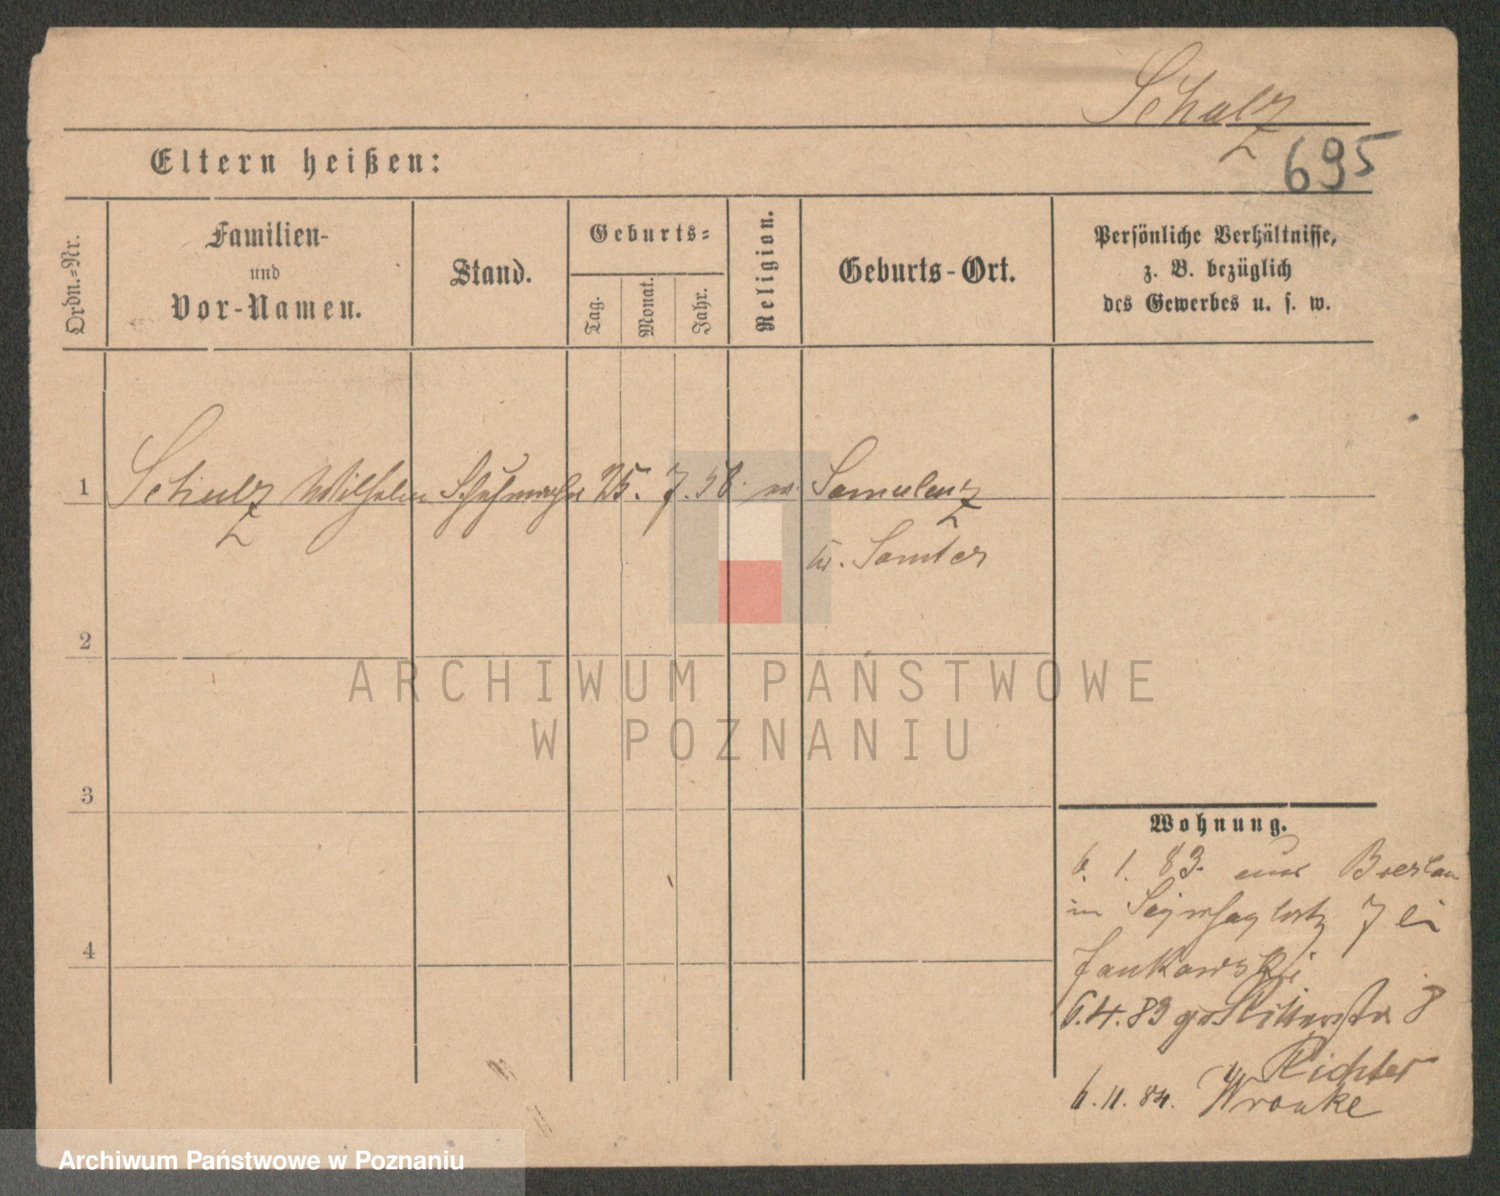 Schulz
695
Eltern heißen:
Ordn.-Nr.
Familien-
und
Vor-Namen.
Stand.
Geburts-
Tag.
Monat.
Jahr.
Religion.
Geburts-Ort.
Persönliche Verhältnisse,
z. B. bezüglich
des Gewerbes u. s. w.
1 Schulz Wilhelm Schuhmacher 25. 7. 58.
Kr. Samter
2
3
4
Wohnung.
6. 1. 83. aus Breslau
in Sapiehaplatz 7 bei
Jankowski
6.4.83 Ritterstr 8
Richter
6. 11. 84. Wronke
ARCHIWUM PAŃSTWOWE
W POZNANIU
Archiwum Państwowe w Poznaniu